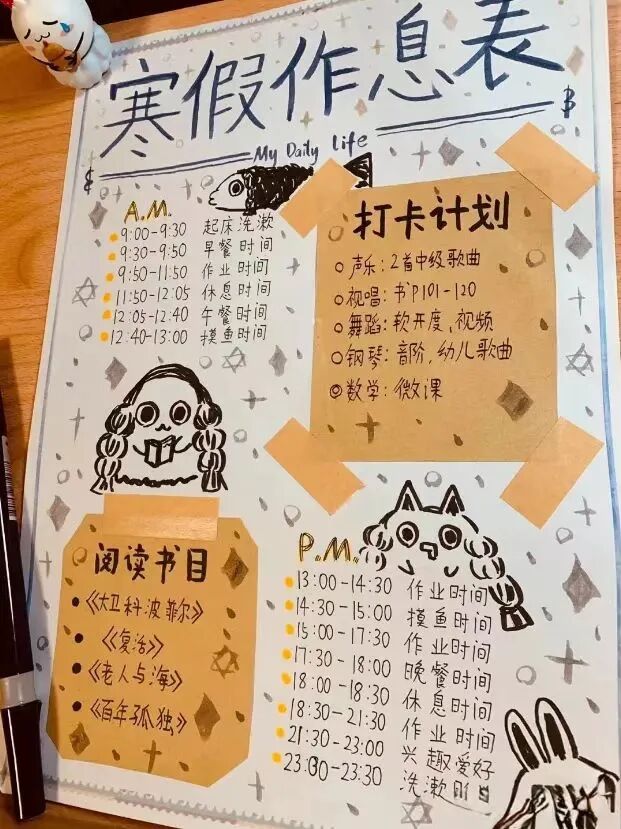 寒假作息表
My Daily Life
A.M.
9:00-9:30 起床洗漱
9:30-9:50 早餐时间
9:50-11:50 作业时间
11:50-12:05 休息时间
12:05-12:40 午餐时间
12:40-13:00 摸鱼时间
打卡计划
声乐：2首中级歌曲
视唱：书P101-120
舞蹈：软开度、视频
钢琴：音阶、幼儿歌曲
数学：微课
阅读书目
《大卫科波菲尔》
《复活》
《老人与海》
《百年孤独》
P.M.
13:00-14:30 作业时间
14:30-15:00 摸鱼时间
15:00-17:30 作业时间
17:30-18:00 晚餐时间
18:00-18:30 休息时间
18:30-21:30 作业时间
21:30-23:00 兴趣爱好
23:00-23:30 洗漱